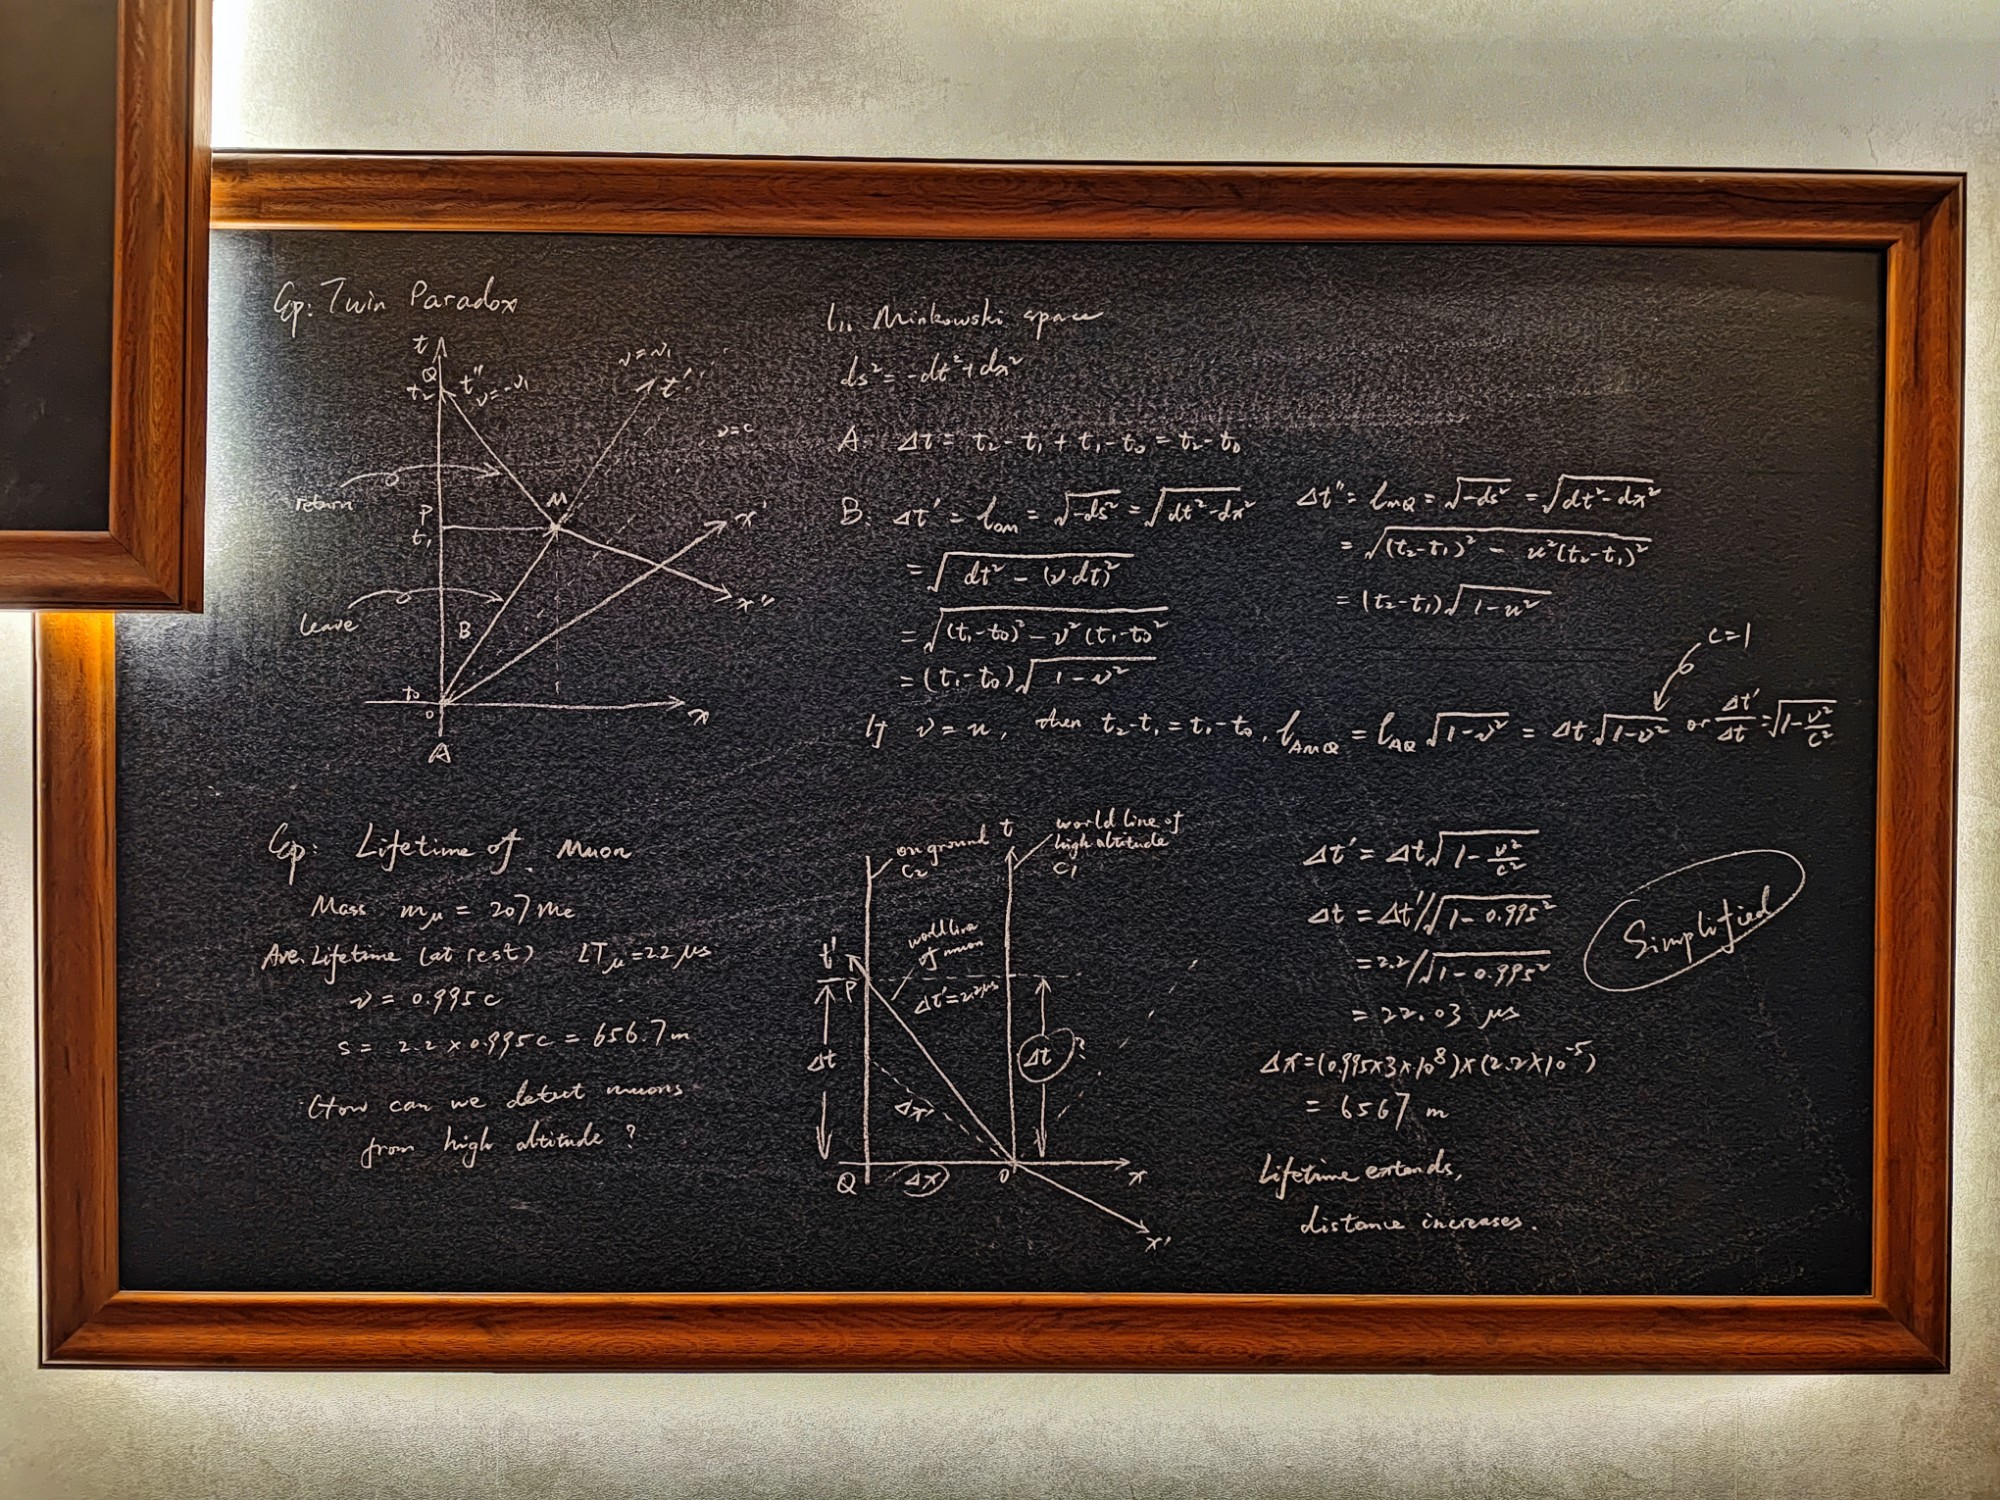 Ep: Twin Paradox
t
Q
t₂
t''
v=-v₁
v=v₁
t'
v=c
return
M
P
t₁
x'
x''
leave
B
t₀
o
x
A
In Minkowski space
ds²=-dt²+dx²
A: Δt = t₂-t₁ + t₁-t₀ = t₂-t₀
B: Δt' = l_OM = √(-ds²) = √(dt²-dx²)
= √(dt² - (vdt)²)
= √((t₁-t₀)² - v²(t₁-t₀)²)
= (t₁-t₀)√(1-v²)
Δt'' = l_MQ = √(-ds²) = √(dt²-dx²)
= √((t₂-t₁)² - u²(t₂-t₁)²)
= (t₂-t₁)√(1-u²)
c=1
If v=u, then t₂-t₁=t₁-t₀, l_AMQ = l_AQ √(1-v²) = Δt √(1-v²) or Δt'/Δt = √(1-v²/c²)
Ep: Lifetime of Muon
Mass m_μ = 207 me
Ave. Lifetime (at rest) LT_μ=2.2 μs
v = 0.995c
s = 2.2 x 0.995c = 656.7m
How can we detect muons
from high altitude ?
on ground
C₂
t
world line of
high altitude
C₁
world line
of muon
Δt'=2.2μs
t'
P
Δt
Δt ?
Δx'
Q
Δx
o
x
x'
Δt' = Δt√(1-v²/c²)
Δt = Δt'/√(1-0.995²)
=2.2/√(1-0.995²)
= 22.03 μs
Δx=(0.995x3x10⁸)x(2.2x10⁻⁵)
= 6567 m
Lifetime extends,
distance increases.
Simplified